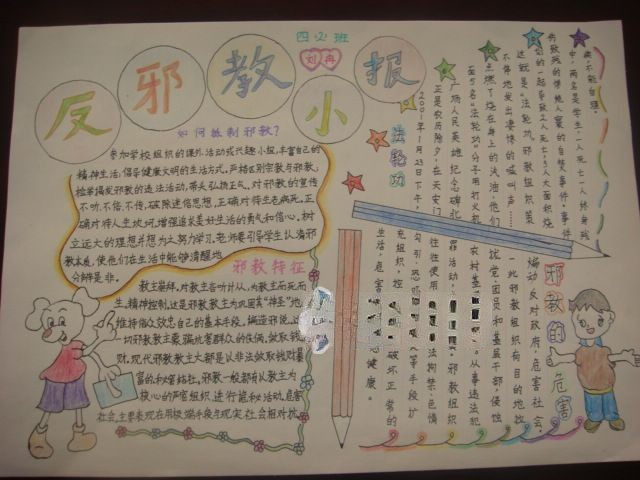 四(2)班
刘冉
反邪教小报
如何抵制邪教?
参加学校组织的课外活动或兴趣小组,丰富自己的
精神生活;倡导健康文明的生活方式,严格区别宗教与邪教,
检举揭发邪教的违法活动,带头弘扬正气。对邪教的宣传
不听、不信、不传。破除迷信思想,正确对待生老病死。正
确对待人生坎坷,增强追求美好生活的勇气和信心。树
立远大的理想并想为之努力学习。老师要引导学生认清邪
教本质,使他们在生活中能够清醒地
分辨是非。
邪教特征
教主崇拜,对教主言听计从,为教主而死而
生。精神控制,这是邪教教主为巩固其“神圣”地
维持信众效忠自己的基本手段。编造邪说
一切邪教教主蒙骗坑害群众的伎俩。敛取钱
财,现代邪教教主大都是以非法敛取钱财暴
富的。秘密结社,邪教一般都有以教主为
核心的严密组织,进行诡秘活动。危害
社会,主要表现在用极端手段与现实社会相对抗
法轮功
2001年1月23日下午,
正是农历除夕,在天安门
广场人民英雄纪念碑北
面5名“法轮功”分子用打火机
点燃了浇在身上的汽油,他们
不停地发出凄惨的喊叫声……
这就是“法轮功”邪教组织策
划的一起导致2人死亡,3人大面积烧
伤致残的惨绝人寰的自焚事件。事件
中,两名是学生一人死亡一人终身残
疾不能自理。
邪教的危害
煽动反对政府,危害社会,
一些邪教组织有目的地拉
拢党团员和基层干部,侵蚀
农村基
从事违法犯
罪活动,
邪教组织
往往使用
法拘禁、色情
勾引、恐
等手段扩
充组织,控
破坏正常的
生活,危害
心健康。